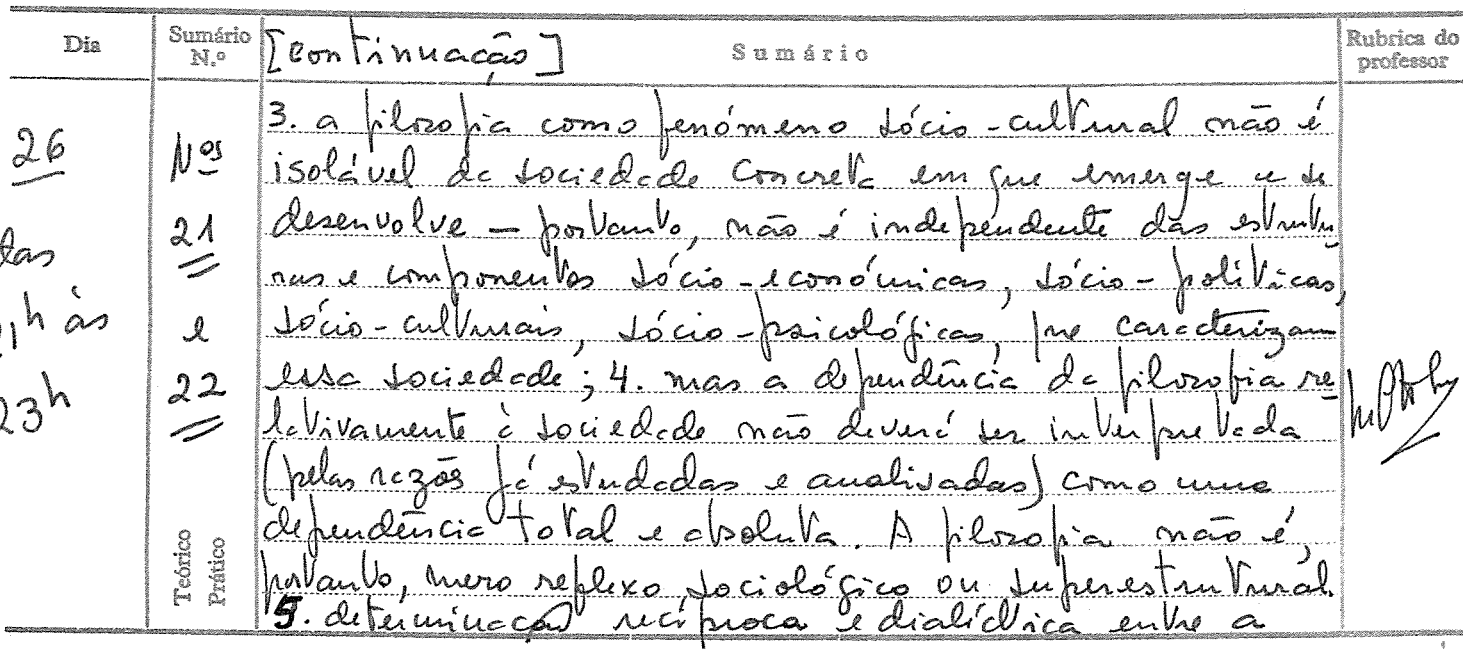 Dia Sumário N.º [continuação] Sumário Rubrica do professor
3. a filosofia como fenómeno sócio-cultural não é
26 Nos isolável da sociedade concreta em que emerge e se
21 desenvolve — portanto, não é independente das estrutu
das ras e componentes sócio-económicas, sócio-políticas,
21h às e sócio-culturais, sócio-psicológicas, que caracterizam
23h 22 essa sociedade; 4. mas a dependência da filosofia re
lativamente à sociedade não deverá ser interpretada
(pelas razões já estudadas e analisadas) como uma
dependência total e absoluta. A filosofia não é,
Teórico Prático portanto, mero reflexo sociológico ou superestrutural.
5. determinação recíproca e dialéctica entre a